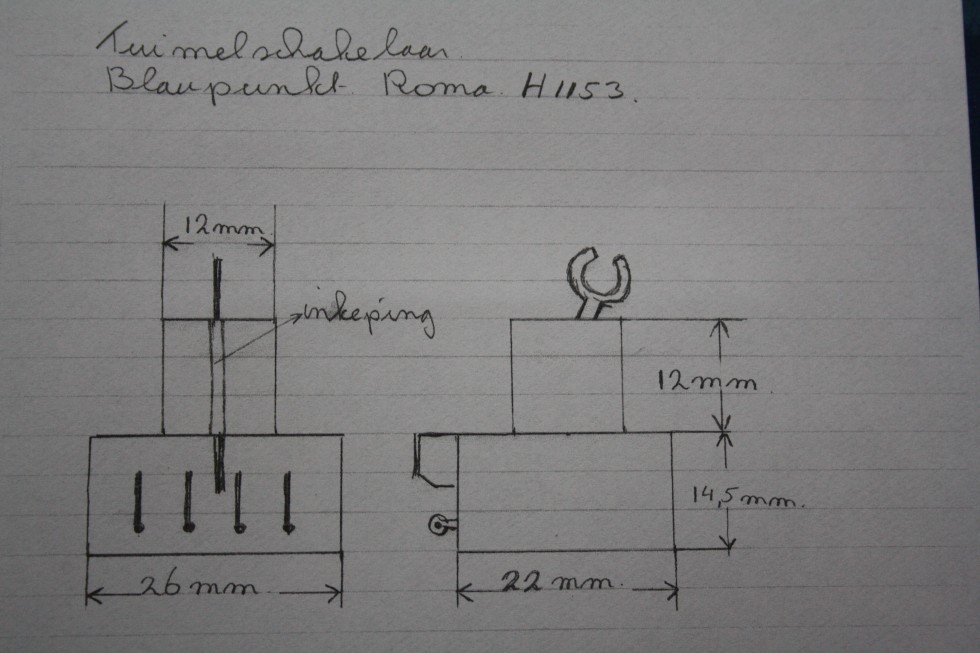 Tuimelschakelaar.
Blaupunkt. Roma. H1153.
12mm
inkeping
12mm
14,5mm.
26mm
22mm.